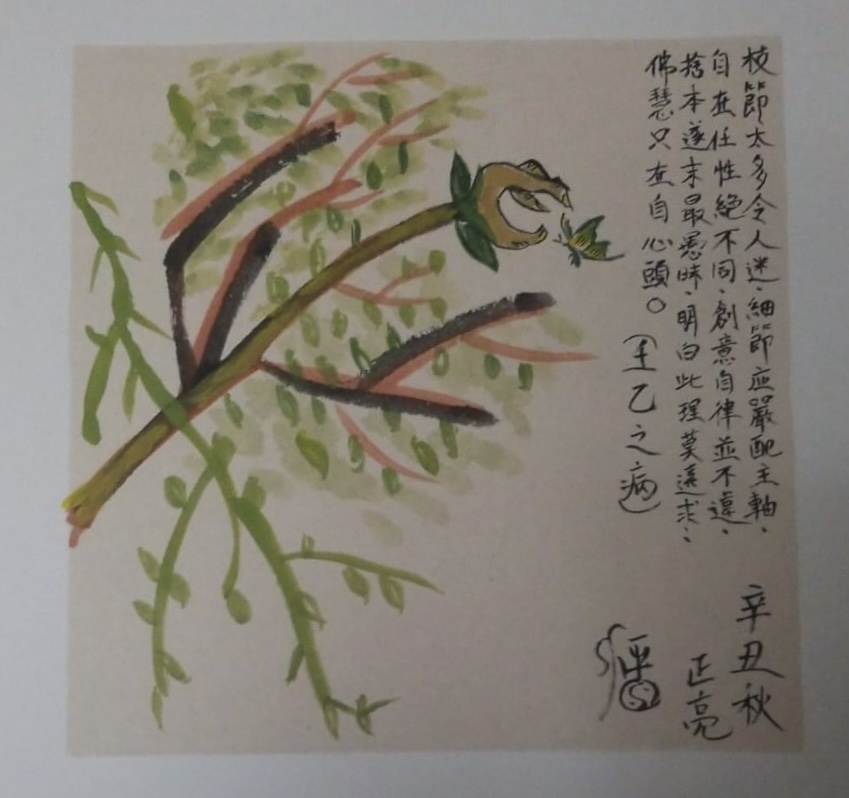 枝節太多令人迷．細節应嚴配主軸．
自在任性絕不同．創意自律並不違．
捨本逐末最愚昧．明白此理莫遠求：
佛慧只在自心頭。（王乙之病）
辛丑秋
正亮